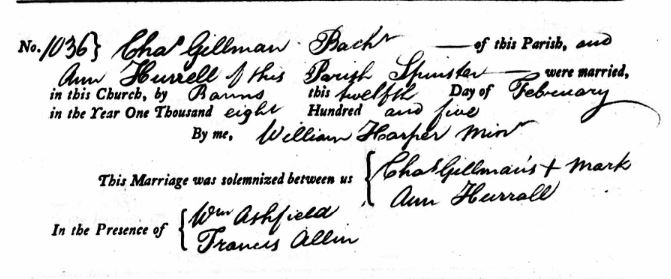 No. 1036} Chas Gillman Bachr — of this Parish, and
Ann Hurrell of this Parish Spinster — were married,
in this Church, by Banns this twelfth Day of Febeuary
in the Year One Thousand eight Hundred and five
By me, William Harper Minr
This Marriage was solemnized between us { Chas Gillman's + Mark
Ann Hurrall
In the Presence of { Wm Ashfield
Francis Allin